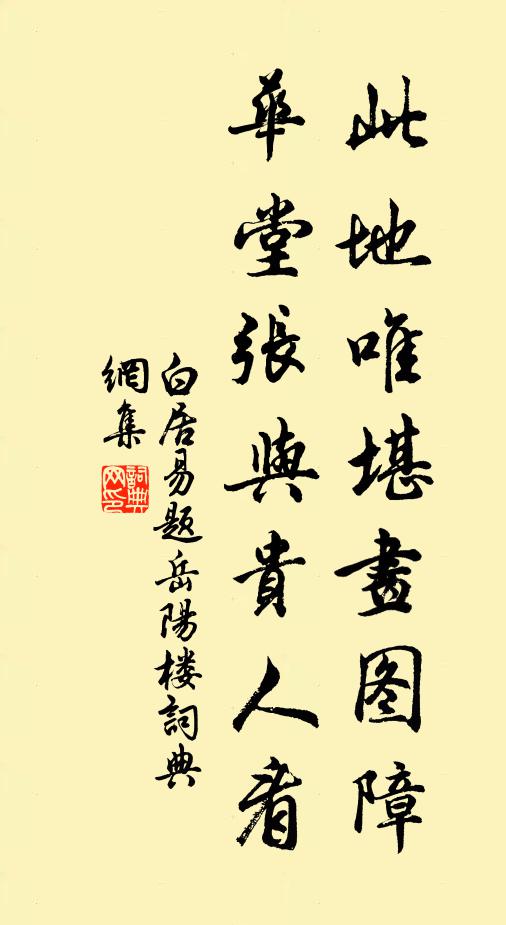 此地唯堪畫图障
華堂張與貴人看
白居易題岳陽楼詞典
網集
詞典網印